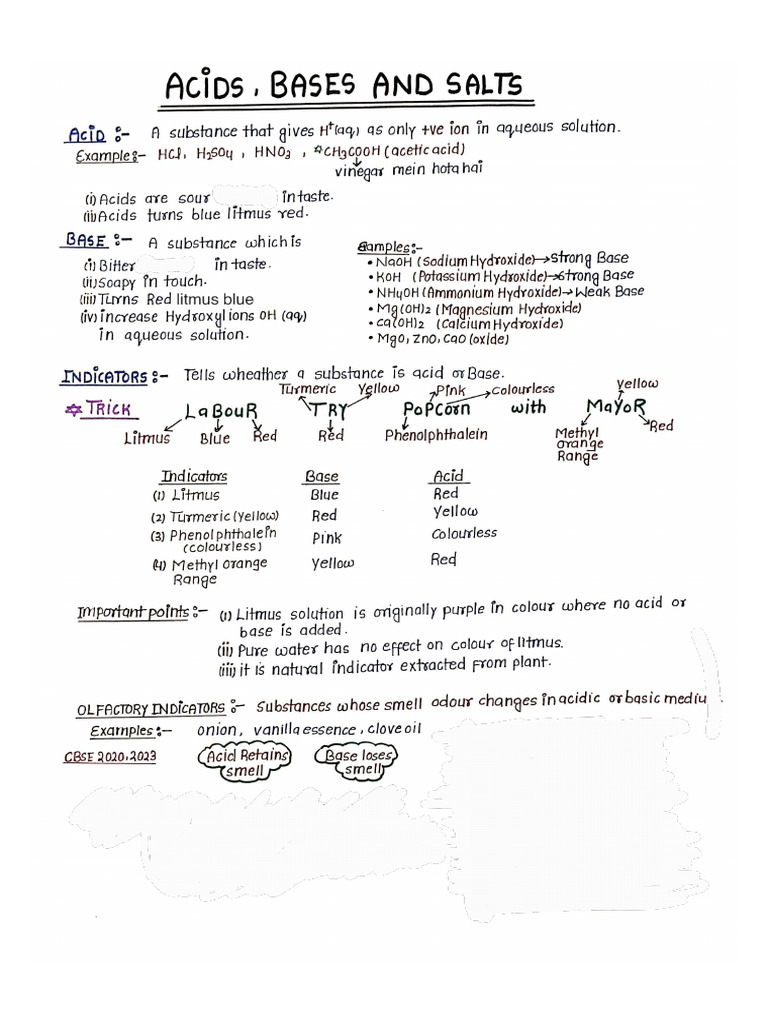 ACIDS, BASES AND SALTS
ACID :- A substance that gives H+(aq) as only +ve ion in aqueous solution.
Example:- HCl, H2SO4, HNO3, *CH3COOH (acetic acid)
vinegar mein hota hai
(i) Acids are sour in taste.
(ii) Acids turns blue litmus red.
BASE :- A substance which is
(i) Bitter in taste.
(ii) Soapy in touch.
(iii) Turns Red litmus blue
(iv) increase Hydroxyl ions OH (aq)
in aqueous solution.
Eamples:-
• NaOH (Sodium Hydroxide)→Strong Base
• KOH (Potassium Hydroxide)→Strong Base
• NH4OH (Ammonium Hydroxide)→Weak Base
• Mg(OH)2 (Magnesium Hydroxide)
• Ca(OH)2 (Calcium Hydroxide)
• MgO, ZnO, CaO (oxide)
INDICATORS :- Tells wheather a substance is acid or Base.
Turmeric Yellow Pink colourless yellow
TRICK LaBouR TRY PoPCorn with MaYoR
Litmus Blue Red Red Phenolphthalein Methyl orange Range Red
Indicators Base Acid
(1) Litmus Blue Red
(2) Turmeric (yellow) Red Yellow
(3) Phenolphthalein (colourless) Pink Colourless
(4) Methyl orange Range Yellow Red
Important points :- (i) Litmus solution is originally purple in colour where no acid or
base is added.
(ii) Pure water has no effect on colour of litmus.
(iii) it is natural indicator extracted from plant.
OLFACTORY INDICATORS :- Substances whose smell odour changes in acidic or basic mediu
Examples:- onion, vanilla essence, clove oil
CBSE 2020, 2023 Acid Retains smell Base loses smell